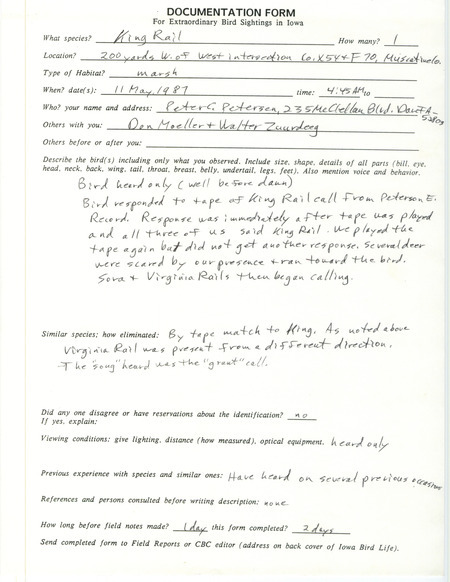 DOCUMENTATION FORM
For Extraordinary Bird Sightings in Iowa
What species? King Rail How many? 1
Location? 200 yards W. of West intersection Co. X54 & F 70, Muscatine Co.
Type of Habitat? marsh
When? date(s): 11 May, 1987 time: 4:45 AM to
Who? your name and address: Peter C. Petersen, 235 McClellan Blvd. Dav. IA
Others with you: Don Moeller & Walter Zuurdeeg
Others before or after you:
Describe the bird(s) including only what you observed. Include size, shape, details of all parts (bill, eye,
head, neck, back, wing, tail, throat, breast, belly, undertail, legs, feet). Also mention voice and behavior.
Bird heard only (well before dawn)
Bird responded to tape of King Rail call from Peterson E.
Record. Response was immediately after tape was played
and all three of us said King Rail. We played the
tape again but did not get another response. Several deer
were scared by our presence & ran toward the bird.
Sora & Virginia Rails then began calling.
Similar species; how eliminated: By tape match to King. As noted above
Virginia Rail was present from a different direction.
The "song" heard was the "grunt" call.
Did any one disagree or have reservations about the identification? no
If yes, explain:
Viewing conditions; give lighting, distance (how measured), optical equipment. heard only
Previous experience with species and similar ones: Have heard on several previous occasions
References and persons consulted before writing description: none
How long before field notes made? 1 day this form completed? 2 days
Send completed form to Field Reports or CBC editor (address on back cover of Iowa Bird Life).